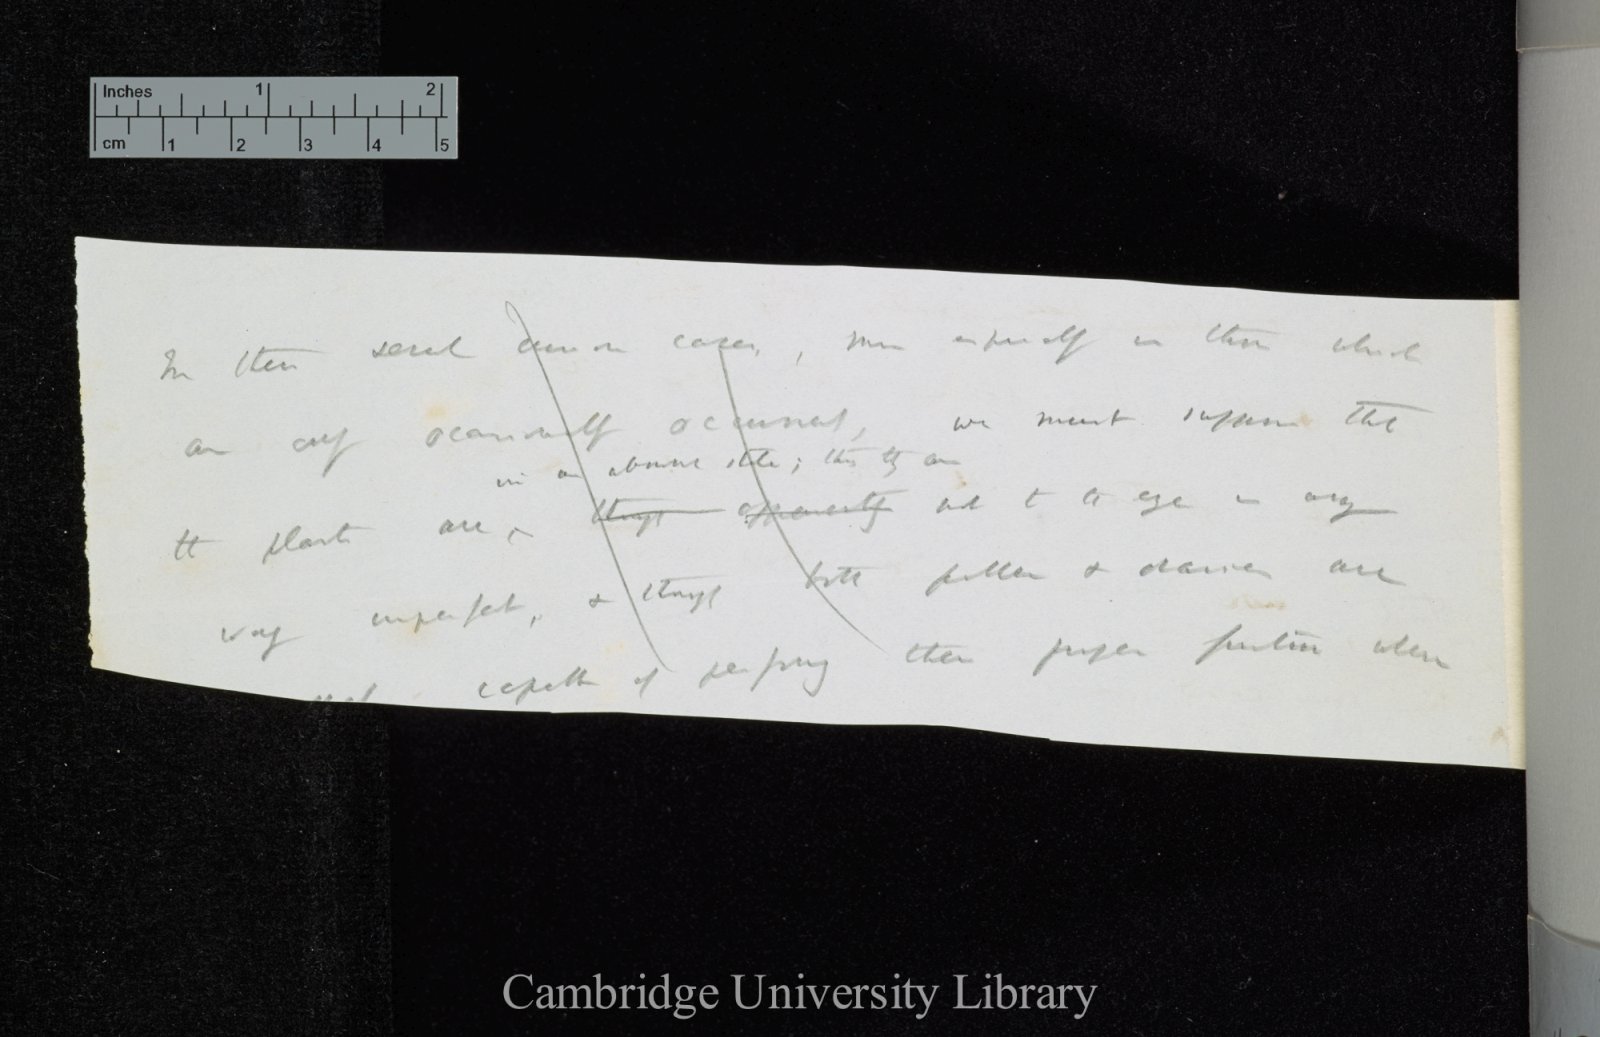 Inches 1 2
cm 1 2 3 4 5
In these several curious cases, more especially in those which
are only occasionally occurred, we must suppose that
in an abnormal state; tho' they are
the plants are, though apparently not to the eye in any
way imperfect, & though both pollen & ovaries are
capable of performing their proper function when
Cambridge University Library